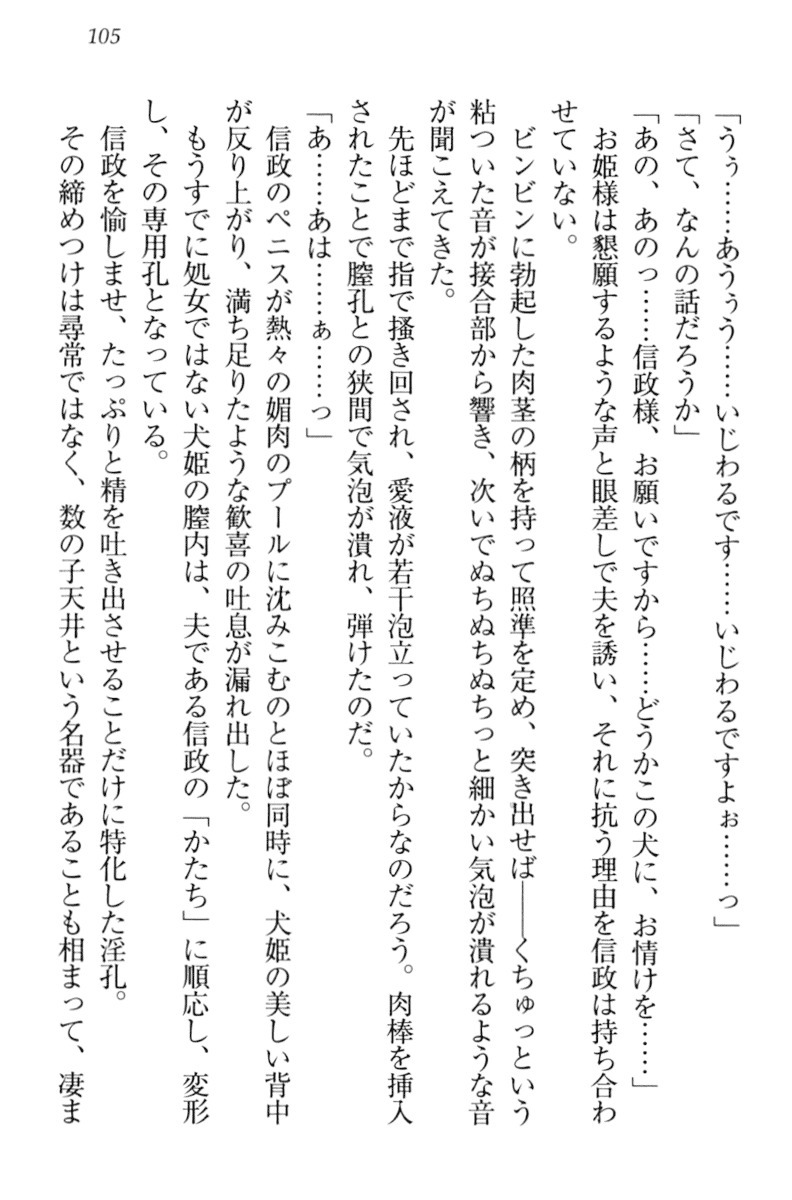 105
「うぅ……あうぅう……いじわるです……いじわるですよぉ……っ」
「さて、なんの話だろうか」
「あの、あのっ……信政様、お願いですから……どうかこの犬に、お情けを……」
お姫様は懇願するような声と眼差しで夫を誘い、それに抗う理由を信政は持ち合わ
せていない。
ビンビンに勃起した肉茎の柄を持って照準を定め、突き出せば――くちゅっという
粘ついた音が接合部から響き、次いでぬちぬちぬちっと細かい気泡が潰れるような音
が聞こえてきた。
先ほどまで指で掻き回され、愛液が若干泡立っていたからなのだろう。肉棒を挿入
されたことで膣孔との狭間で気泡が潰れ、弾けたのだ。
「あ……あは……ぁ……っ」
信政のペニスが熱々の媚肉のプールに沈みこむのとほぼ同時に、犬姫の美しい背中
が反り上がり、満ち足りたような歓喜の吐息が漏れ出した。
もうすでに処女ではない犬姫の膣内は、夫である信政の「かたち」に順応し、変形
し、その専用孔となっている。
信政を愉しませ、たっぷりと精を吐き出させることだけに特化した淫孔。
その締めつけは尋常ではなく、数の子天井という名器であることも相まって、凄ま